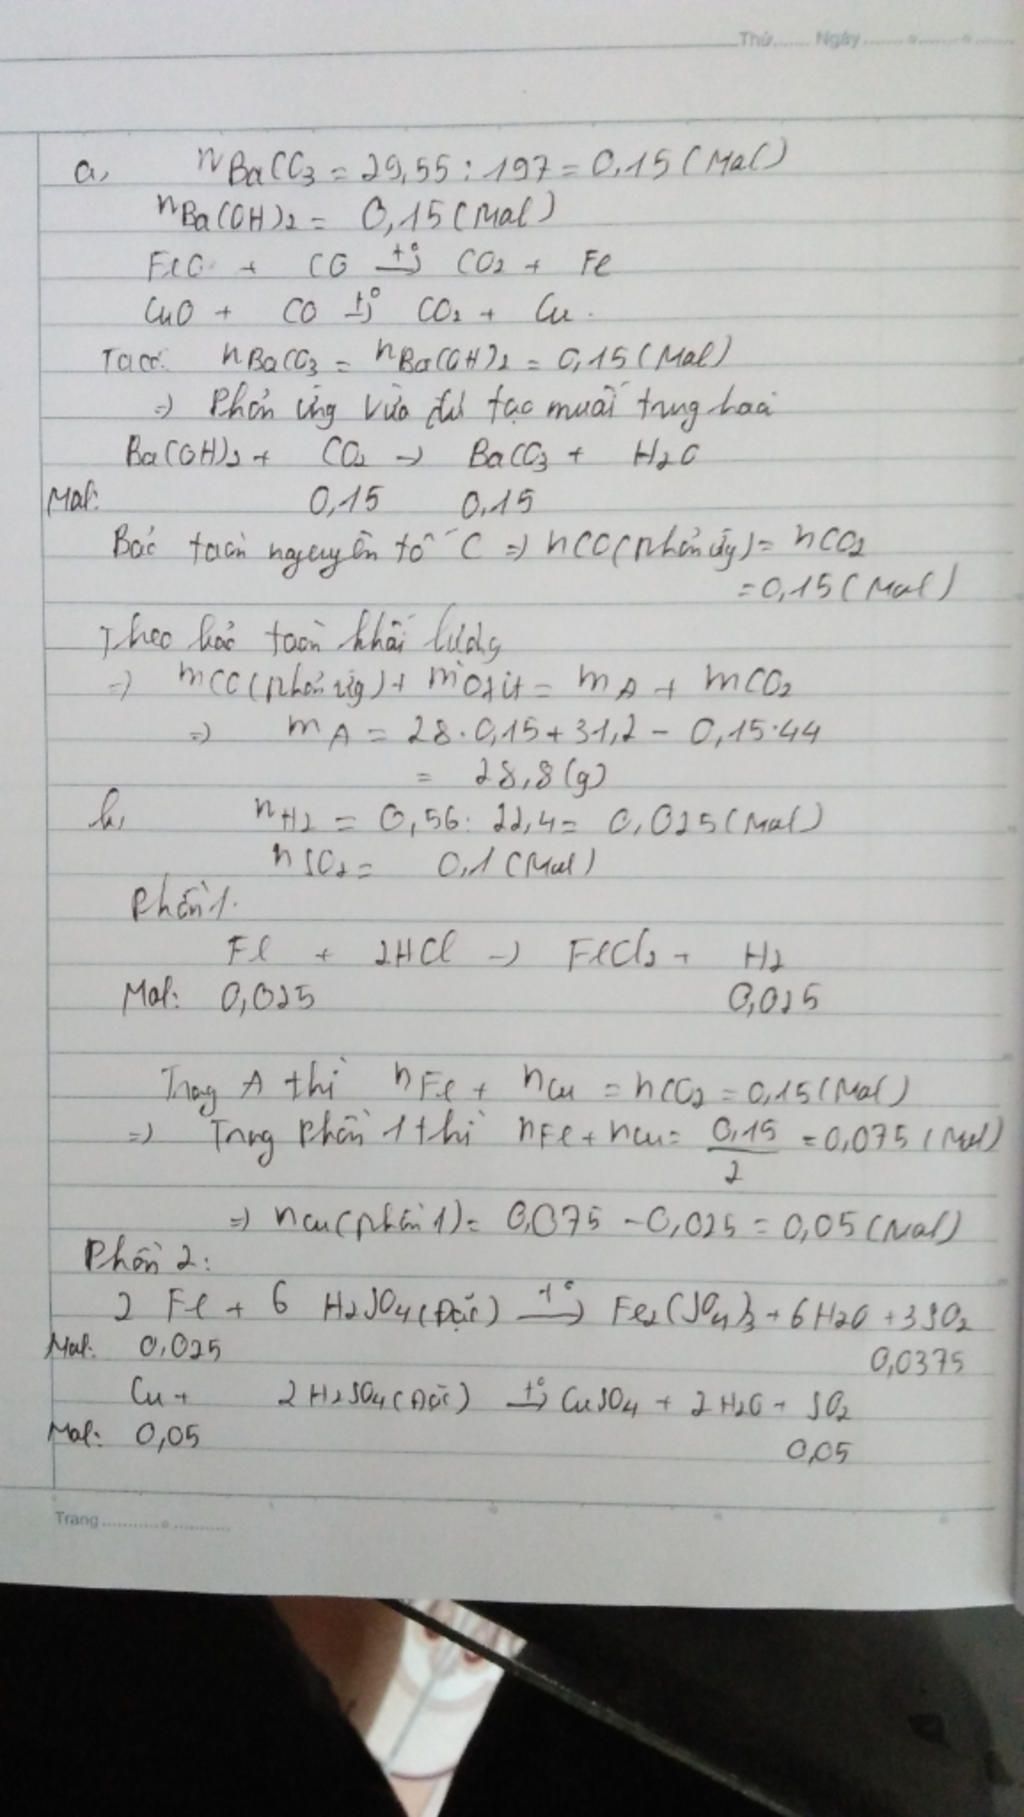 Thứ....... Ngày........................
a, nBaCO3 = 29,55 : 197 = 0,15 (Mol)
nBa(OH)2 = 0,15 (Mol)
FeO + CO →t° CO2 + Fe
CuO + CO →t° CO2 + Cu.
Ta có: nBaCO3 = nBa(OH)2 = 0,15 (Mol)
=> Phản ứng vừa đủ tạo muối trung hoà
Ba(OH)2 + CO2 → BaCO3 + H2O
Mol: 0,15 0,15
Bảo toàn nguyên tố C => nCO(phản ứng) = nCO2
= 0,15 (Mol)
Theo bảo toàn khối lượng
=> mCO(phản ứng) + mOxit = mA + mCO2
=> mA = 28.0,15 + 31,2 - 0,15.44
= 28,8 (g)
b, nH2 = 0,56 : 22,4 = 0,025 (Mol)
nSO2 = 0,1 (Mol)
Phần 1.
Fe + 2HCl → FeCl2 + H2
Mol: 0,025 0,025
Trong A thì nFe + nCu = nCO2 = 0,15 (Mol)
=> Trong Phần 1 thì nFe + nCu = 0,15/2 = 0,075 (Mol)
=> nCu(phần 1) = 0,075 - 0,025 = 0,05 (Mol)
Phần 2:
2 Fe + 6 H2SO4(Đặc) →t° Fe2(SO4)3 + 6H2O + 3SO2
Mol: 0,025 0,0375
Cu + 2H2SO4(Đặc) →t° CuSO4 + 2H2O + SO2
Mol: 0,05 0,05
Trang........................